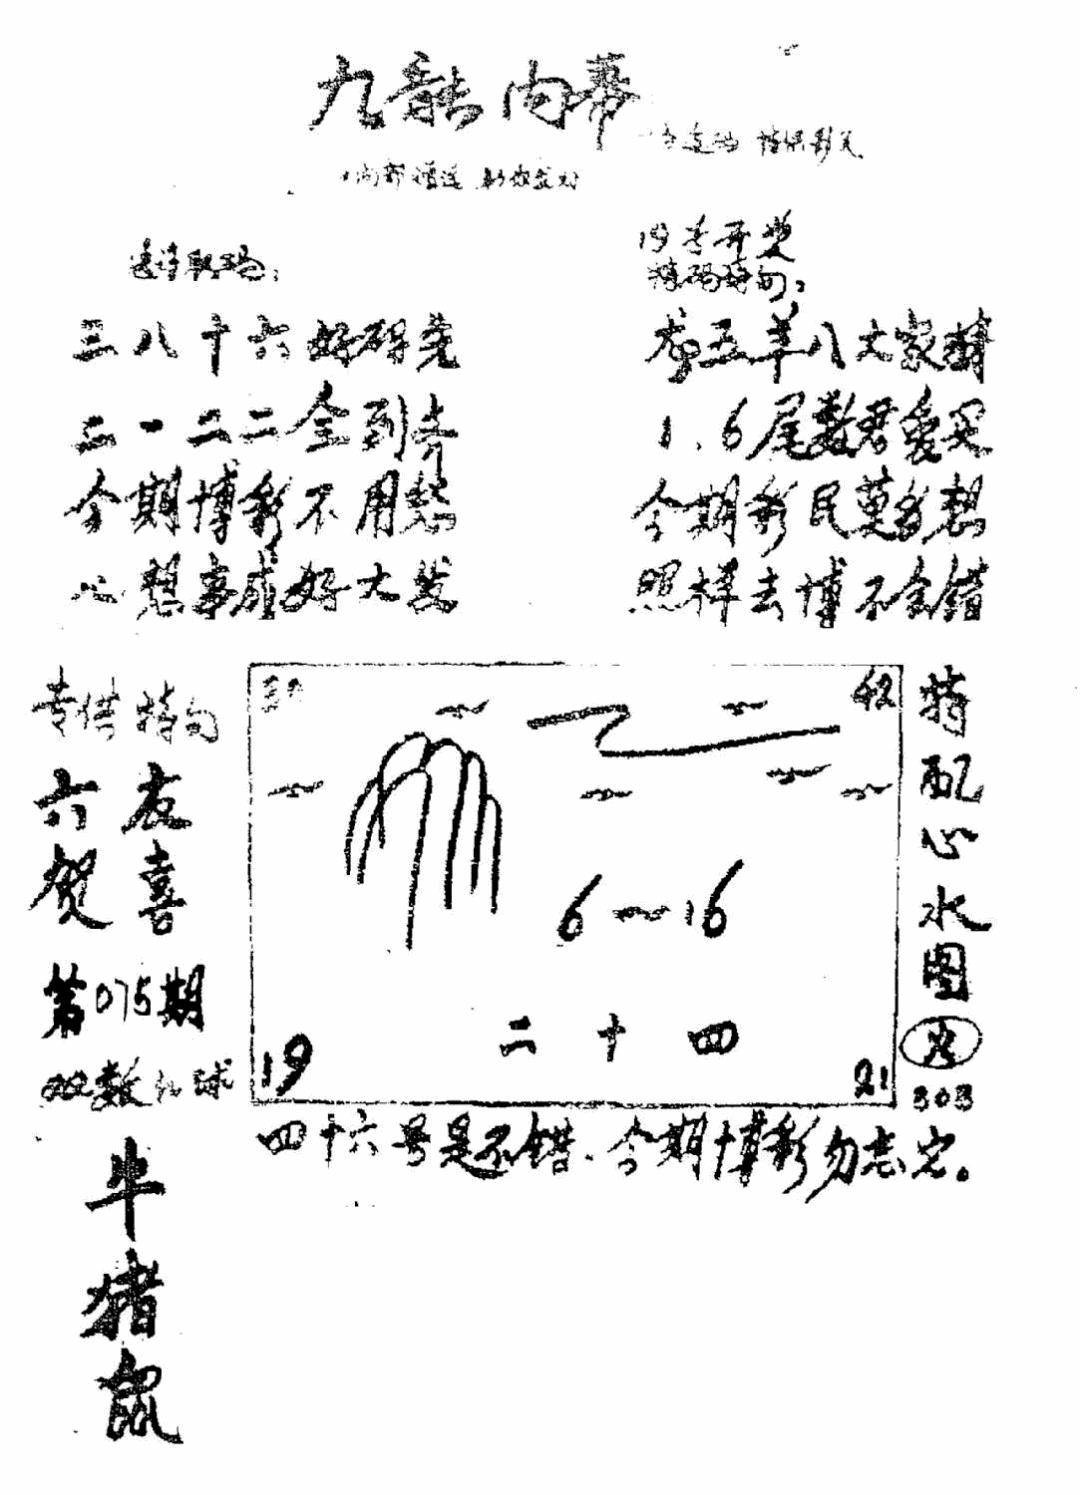 九龙内幕
19号开奖
特码诗句:
三八十六好研究
二一二二全到齐
今期博彩不用愁
心想事成好大发
龙五羊八大家猜
1.6尾数君爱买
今期彩民莫多想
照样去博不会错
专供特句
六友
贺喜
第075期
双数红球
牛
猪
鼠
6~16
二十四
19
21
特配心水图
303
四十六号是不错.今期博彩勿忘它。